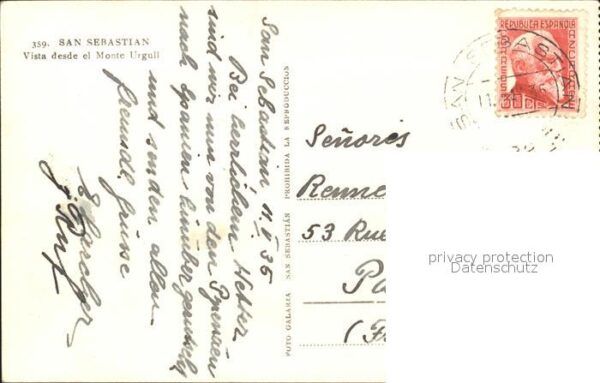 359. SAN SEBASTIAN
Vista desde el Monte Urgull
San Sebastian, 11.V.35
Bei herrlichem Wetter
sind wir nun von den Pyrenäen
nach Spanien hinüber gerutscht
und senden allen
freundl. Grüsse
FOTO GALARZA SAN SEBASTIÁN PROHIBIDA LA REPRODUCCIÓN
REPUBLICA ESPAÑOLA
30 CTS
SAN SEBASTIAN
Señores
Renne
53 Rue
Pa
(F
privacy protection
Datenschutz